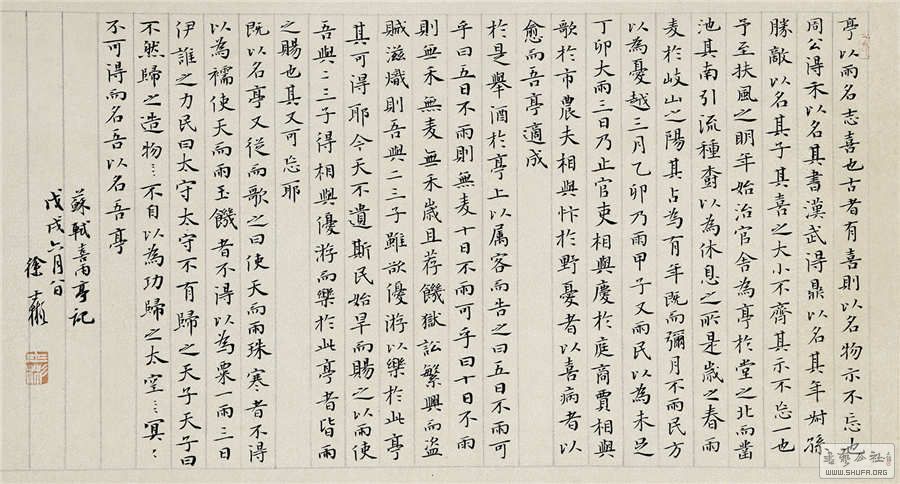 亭以雨名志喜也古者有喜則以名物示不忘也
周公得禾以名其書漢武得鼎以名其年叔孫
勝敵以名其子其喜之大小不齊其示不忘一也
予至扶風之明年始治官舍為亭於堂之北而鑿
池其南引流種樹以為休息之所是歲之春雨
麦於岐山之陽其占為有年既而彌月不雨民方
以為憂越三月乙卯乃雨甲子又雨民以為未足
丁卯大雨三日乃止官吏相與慶於庭商賈相與
歌於市農夫相與忭於野憂者以喜病者以
愈而吾亭適成
於是舉酒於亭上以属客而告之曰五日不雨可
乎曰五日不雨則無麦十日不雨可乎曰十日不雨
則無禾無麦無禾歲且荐饑獄訟繁興而盜
賊滋熾則吾與二三子雖欲優游以樂於此亭
其可得耶今天不遺斯民始旱而賜之以雨使
吾與二三子得相與優游而樂於此亭者皆雨
之賜也其又可忘耶
既以名亭又從而歌之曰使天而雨珠寒者不得
以為襦使天而雨玉饑者不得以為粟一雨三日
伊誰之力民曰太守太守不有歸之天子天子曰
不然歸之造物〻不自以為功歸之太空〻冥〻
不可得而名吾以名吾亭
蘇軾喜雨亭記
戊戌六月
徐
WWW.SHUFA.ORG